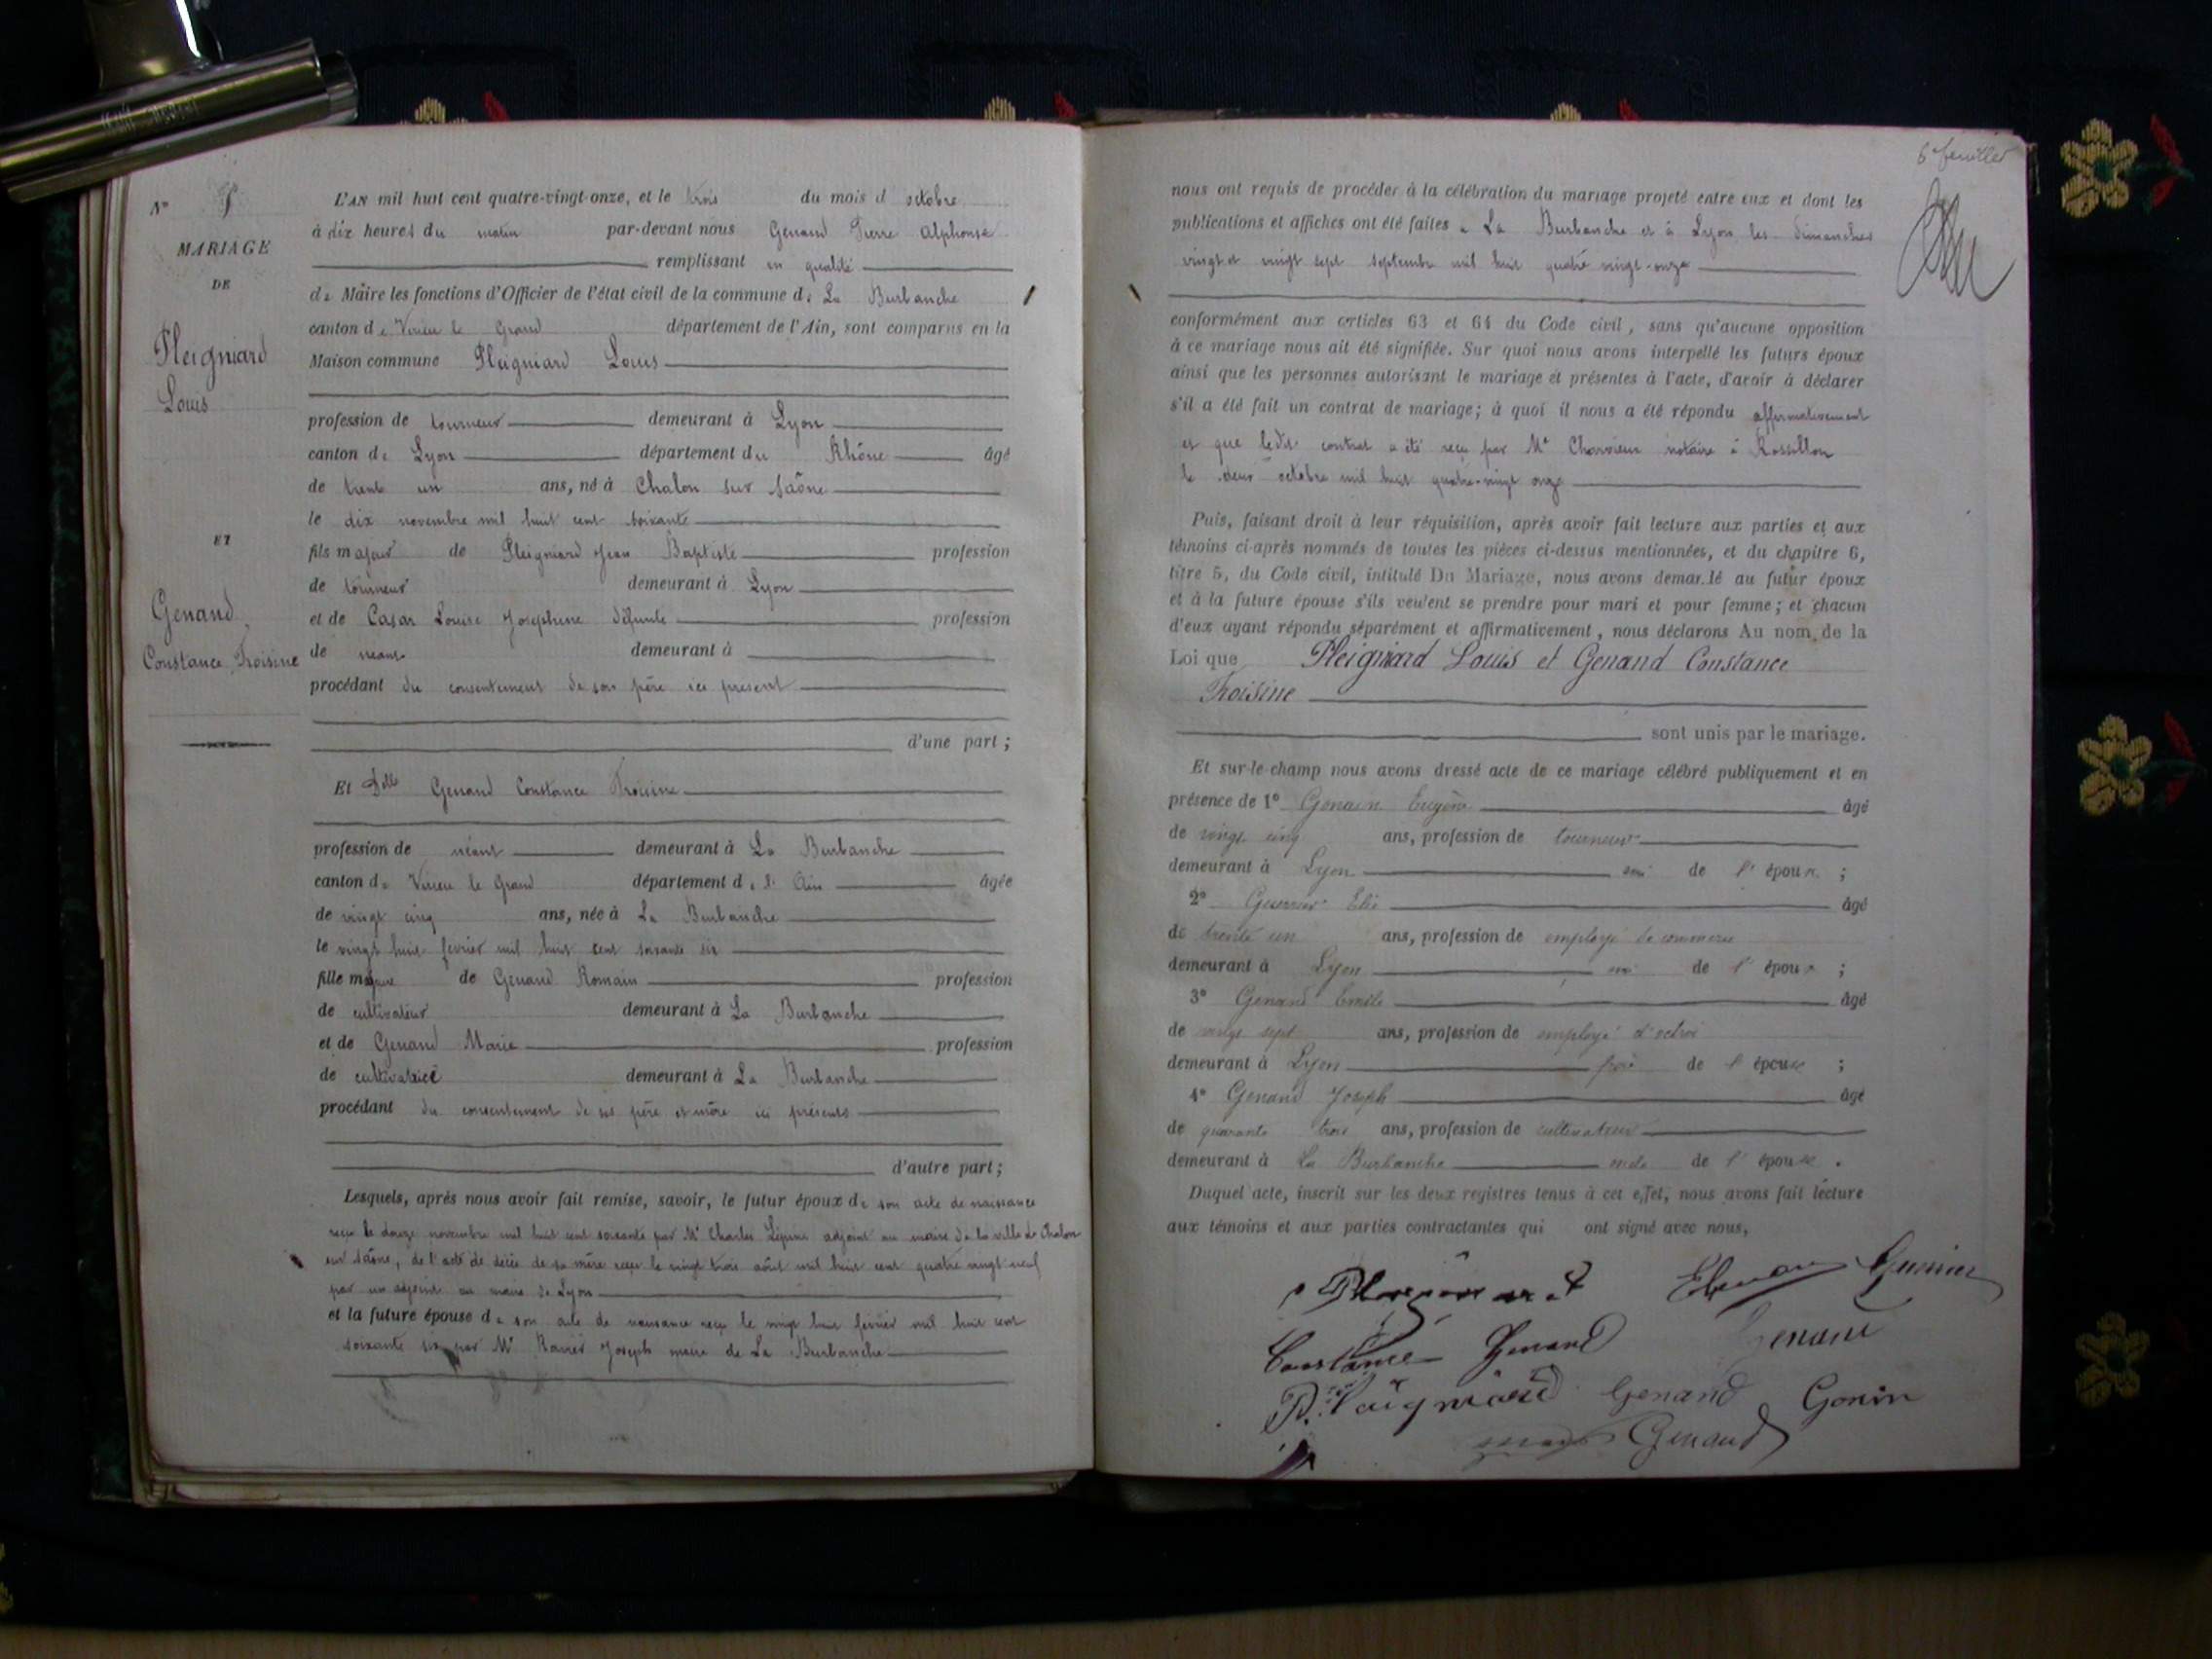 N°
MARIAGE
DE
Pleigniard
Louis
ET
Genand
Constance Froisine
L'AN mil huit cent quatre-vingt-onze, et le trois du mois d octobre
à dix heures du matin par-devant nous Genand Pierre Alphonse
remplissant en qualité
de Maire les fonctions d'Officier de l'état civil de la commune de La Burbanche
canton de Virieu le Grand département de l'Ain, sont comparus en la
Maison commune Pleigniard Louis
profession de tourneur demeurant à Lyon
canton de Lyon département du Rhône âgé
de trente un ans, né à Chalon sur Saône
le dix novembre mil huit cent soixante
fils majeur de Pleigniard Jean Baptiste profession
de tourneur demeurant à Lyon
et de Casar Louise Josephine défunte profession
de néant demeurant à
procédant du consentement de son père ici présent
d'une part ;
Et Dlle Genand Constance Froisine
profession de néant demeurant à La Burbanche
canton de Virieu le Grand département de l'Ain âgée
de vingt cinq ans, née à La Burbanche
le vingt huit février mil huit cent soixante six
fille majeure de Genand Romain profession
de cultivateur demeurant à La Burbanche
et de Genand Marie profession
de cultivatrice demeurant à La Burbanche
procédant du consentement de ses père et mère ici présents
d'autre part ;
Lesquels, après nous avoir fait remise, savoir, le futur époux de son acte de naissance
reçu le douze novembre mil huit cent soixante par Mr Charles adjoint au maire de la ville de Chalon
sur Saône, de l'acte de décès de sa mère reçu le vingt trois août mil huit cent quatre vingt neuf
par un adjoint au maire de Lyon
et la future épouse de son acte de naissance reçu le vingt huit février mil huit cent
soixante six par Mr Ravier Joseph maire de La Burbanche
6e feuillet
nous ont requis de procéder à la célébration du mariage projeté entre eux et dont les
publications et affiches ont été faites à La Burbanche et à Lyon les dimanches
vingt et vingt sept septembre mil huit quatre vingt-onze
conformément aux articles 63 et 64 du Code civil, sans qu'aucune opposition
à ce mariage nous ait été signifiée. Sur quoi nous avons interpellé les futurs époux
ainsi que les personnes autorisant le mariage et présentes à l'acte, d'avoir à déclarer
s'il a été fait un contrat de mariage; à quoi il nous a été répondu affirmativement
et que ledit contrat a été reçu par Me Charvieux notaire à Rossillon
le deux octobre mil huit quatre-vingt onze
Puis, faisant droit à leur réquisition, après avoir fait lecture aux parties et aux
témoins ci-après nommés de toutes les pièces ci-dessus mentionnées, et du chapitre 6,
titre 5, du Code civil, intitulé Du Mariage, nous avons demandé au futur époux
et à la future épouse s'ils veulent se prendre pour mari et pour femme; et chacun
d'eux ayant répondu séparément et affirmativement, nous déclarons Au nom de la
Loi que Pleigniard Louis et Genand Constance
Froisine
sont unis par le mariage.
Et sur-le-champ nous avons dressé acte de ce mariage célébré publiquement et en
présence de 1° Eugène âgé
de vingt cinq ans, profession de tourneur
demeurant à Lyon ami de l'époux ;
2° Guerrier Elie âgé
de trente un ans, profession de employé de commerce
demeurant à Lyon ami de l'époux ;
3° Genand Emile âgé
de vingt sept ans, profession de employé d'octroi
demeurant à Lyon frère de l'épouse ;
4° Genand Joseph âgé
de quarante trois ans, profession de cultivateur
demeurant à La Burbanche oncle de l'épouse .
Duquel acte, inscrit sur les deux registres tenus à cet effet, nous avons fait lecture
aux témoins et aux parties contractantes qui ont signé avec nous,
Constance Genand Genand
Genand Gonin
Genand